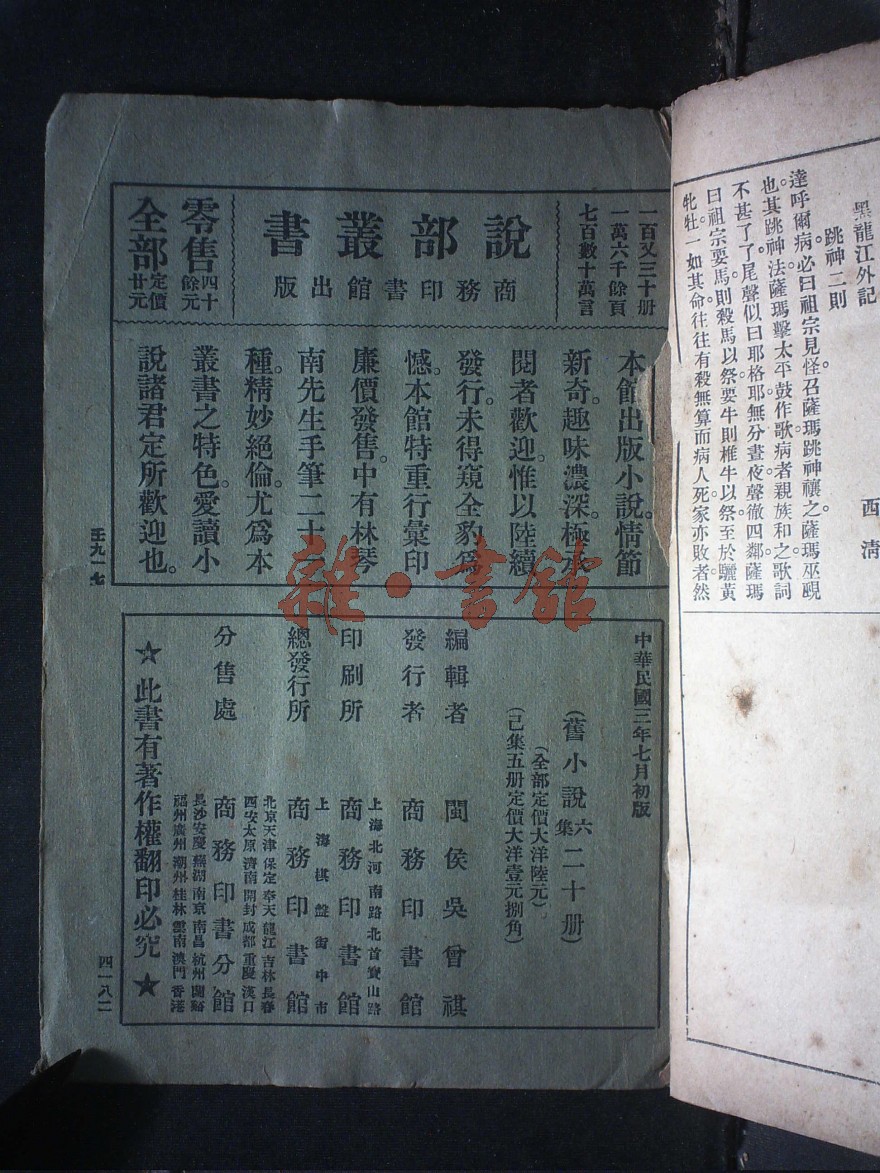 黑龍江外記
西清
跳神二則
達呼爾病必曰祖宗見怪召薩瑪跳神禳之薩瑪巫覡
也其跳神法薩瑪擊太平鼓作歌病者親族和之歌詞
不甚了了尾聲似曰耶格耶無分晝夜聲徹四鄰薩瑪
曰祖宗要馬則殺馬以祭要牛則椎牛以祭至於驪黃
牝牡一如其命往往有殺無算而病人死家亦敗者然
一百又三十册
一萬六千餘頁
七百數十萬言
說部叢書
商務印書館出版
零售四十餘元
全部定價廿元
本館出版小說情節
新奇。趣味濃深。極承
閱者歡迎。惟以陸續
發行。未得窺全豹爲
憾。本館特重行彙印
廉價發售。中有林琴
南先生手筆二十
種。精妙絕倫。尤爲本
叢書之特色。愛讀小
說諸君定所歡迎也。
壬九一七
中華民國三年七月初版
(舊小說六集二十册)
(全部定價大洋陸元)
(己集五册定價大洋壹元捌角)
編輯者 閩侯吳曾祺
發行者 商務印書館
上海北河南路北首寶山路
印刷所 商務印書館
上海棋盤街中市
總發行所 商務印書館
北京天津保定奉天龍江吉林長春
西安太原濟南開封成都重慶漢口
分售處 商務印書分館
長沙安慶蕪湖南京南昌杭州蘭谿
福州廣州潮州桂林雲南澳門香港
★此書有著作權翻印必究★
四一八二
雜·書館